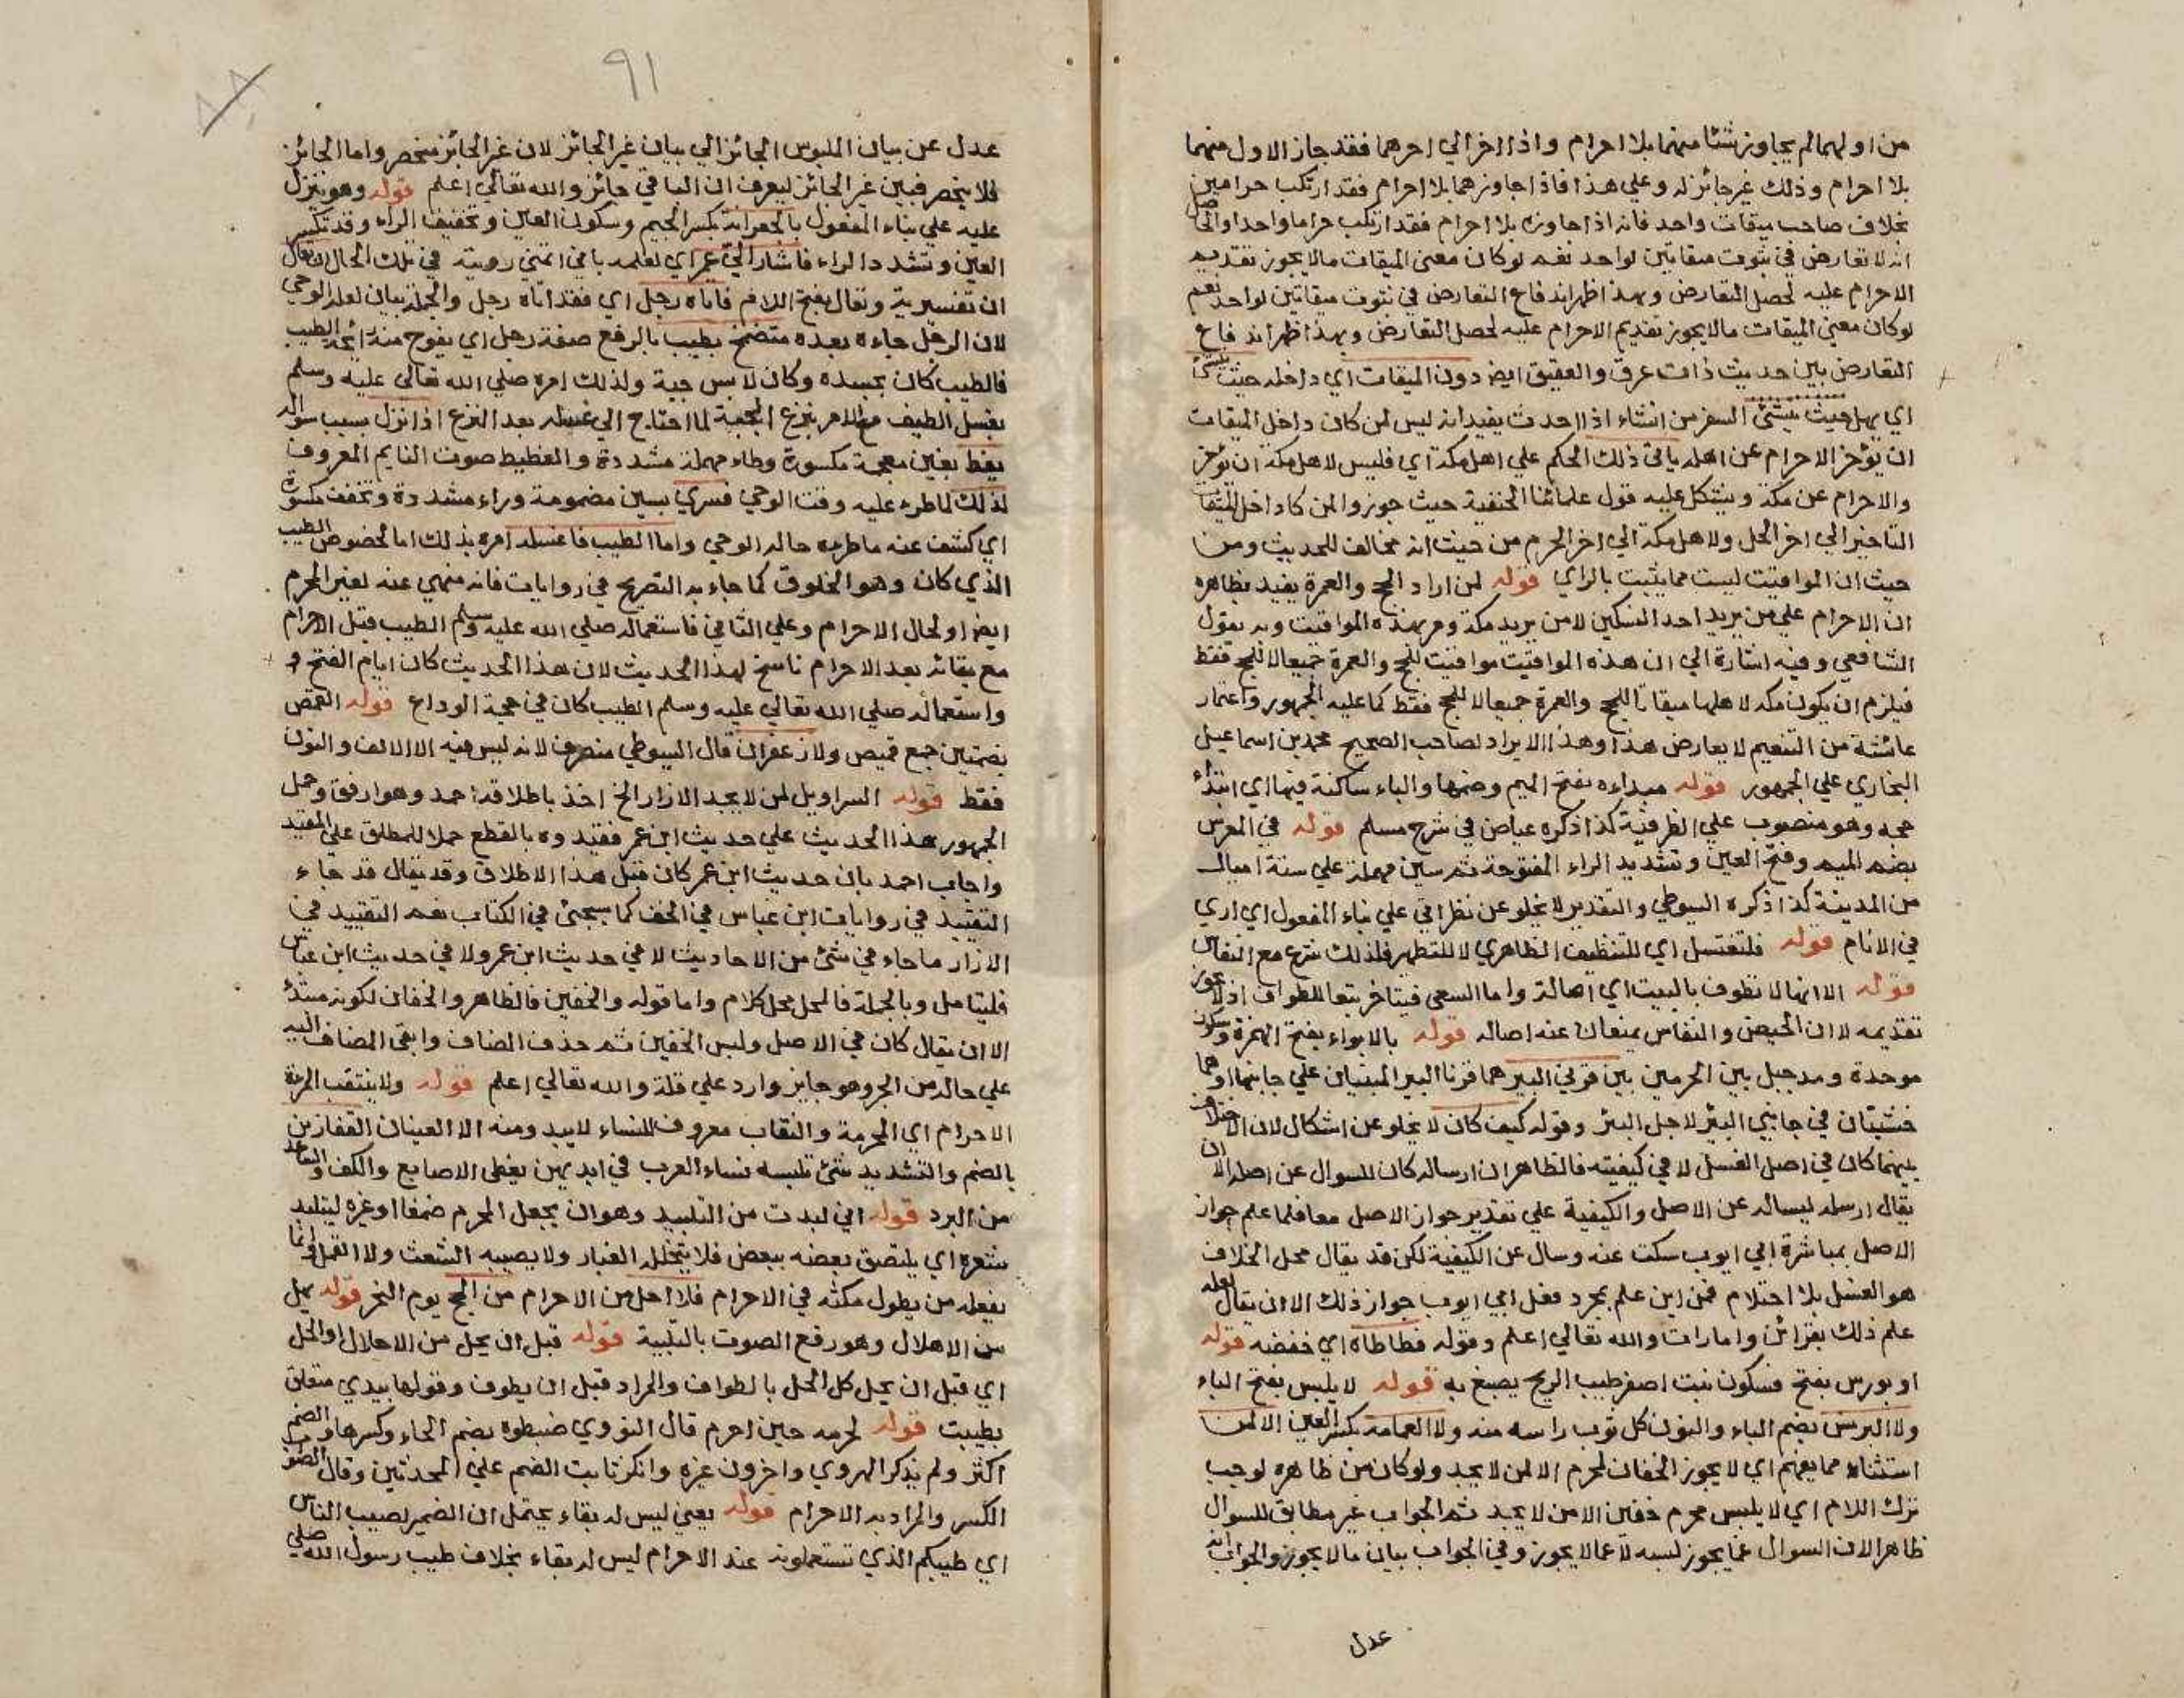 من اولهما لم يجاوز شئا منهما بلا احرام واذا اخر الي اخرهما فقد جاز الاول منهما
بلا احرام وذلك غير جائز له وعلي هذا فاذا جاوزهما بلا احرام فقد ارتكب حرامين
بخلاف صاحب ميقات واحد فانه اذا جاوزه بلا احرام فقد ارتكب حراما واحدا والحاصل
انه لا تعارض في ثبوت ميقاتين لواحد نعم لو كان معني الميقات ما لا يجوز تقديم
الاحرام عليه لحصل التعارض وبهذا ظهر اندفاع التعارض في ثبوت ميقاتين لواحد نعم
لو كان معني الميقات ما لا يجوز تقديم الاحرام عليه لحصل التعارض وبهذا ظهر اندفاع
التعارض بين حديث ذات عرق والعقيق ايض دون الميقات اي داخله حيث ينشئ
اي يهل حيث ينشئ السفر من انشاء اذا احدث يفيد انه ليس لمن كان داخل الميقات
ان يؤخر الاحرام عن اهله ياتي ذلك الحكم علي اهل مكة اي فليس لاهل مكة ان يؤخر
والاحرام عن مكة ويشكل عليه قول علمائنا الحنفية حيث جوزوا لمن كا داخل الميقا
التاخير الي اخر الحل ولاهل مكة الي اخر الحرم من حيث انه مخالف للحديث ومن
حيث ان المواقيت ليست مما يثبت بالراي قوله لمن اراد الحج والعمرة يفيد بظاهره
ان الاحرام علي من يريد احد النسكين لا من يريد مكة ومر بهذه المواقيت وبه يقول
الشافعي وفيه اشارة الي ان هذه المواقيت مواقيت للحج والعمرة جميعا لا للحج فقط
فيلزم ان يكون مكه لاهلها ميقاتا للحج والعمرة جميعا لا للحج فقط كما عليه الجمهور واعتمار
عائشة من التنعيم لا يعارض هذا وهذا الايراد لصاحب الصحيح محمد بن اسماعيل
البخاري علي الجمهور قوله مبداءه بفتح الميم وضمها والباء ساكنة فيهما اي ابتداء
حجه وهو منصوب علي الظرفية كذا ذكره عياض في شرح مسلم قوله في المعرس
بضم الميم وفتح العين وتشديد الراء المفتوحة ثم سين مهملة علي ستة اميال
من المدينة كذا ذكره السيوطي والتقدير لا يخلو عن نظر اتي علي بناء المفعول اي اري
في الانام قوله فلتغتسل اي للتنظيف الظاهري لا للتطهر فلذلك شرع مع النفاس
قوله الا انها لا تطوف بالبيت اي اصالة واما السعي فيتاخر تبعا للطواف اذ لا يجوز
تقديمه لا ان الحيض والنفاس يمنعان عنه اصاله قوله بالابواء بفتح الهمزة وسكون
موحدة ومد جبل بين الحرمين بين قرني البير هما قرنا البير المبنيان علي جانبها اوهما
خشبتان في جانبي البئر لاجل البئر وقوله كيف كان لا يخلو عن اشكال لان الاختلاف
بينهما كان في اصل الغسل لا في كيفيته فالظاهر ان ارساله كان للسوال عن اصله الا ان
يقال ارسله ليساله عن الاصل والكيفية علي تقدير جواز الاصل معا فلما علم جواز
الاصل بمباشرة ابي ايوب سكت عنه وسال عن الكيفية لكن قد يقال محل الخلاف
هو الغسل بلا احتلام فمن اين علم بمجرد فعل ابي ايوب جواز ذلك الا ان يقال لعله
علم ذلك بقرائن وامارات والله تعالي اعلم وقوله فطاطاه اي خفضه قوله
او بورس بفتح فسكون نبت اصفر طيب الريح يصبغ به قوله لا يلبس بفتح الباء
ولا البرنس بضم الباء والنون كل ثوب راسه منه ولا العمامة بكسر العين الا لمن
استثناء مما يفهم اي لا يجوز الخفان لمحرم الا لمن لا يجد ولو كان من ظاهره لوجب
ترك اللام اي لا يلبس محرم خفين الا من لا يجد ثم الجواب غير مطابق للسوال
ظاهرا لان السوال عما يجوز لبسه لا عما لا يجوز وفي الجواب بيان ما لا يجوز والجواب انه
عدل
٩١
عدل عن بيان الملبوس الجائز الي بيان غير الجائز لان غير الجائز منحصر واما الجائز
فلا ينحصر فبين غير الجائز ليعرف ان الباقي جائز والله تعالي اعلم قوله وهو ينزل
عليه علي بناء المفعول بالجعرانة بكسر الجيم وسكون العين وتخفيف الراء وقد تكسر
العين وتشدد الراء فاشار الي عمر اي لعلمه باني اتمني رويته في تلك الحال ان تعال
ان تفسيرية وتعال بفتح اللام فاتاه رجل اي فقد اتاه رجل والجملة بيان لعلة الوحي
لان الرجل جاءه بعده متضمخ بطيب بالرفع صفة رجل اي يفوح منه رائحة الطيب
فالطيب كان بجسده وكان لابس جبة ولذلك امره صلي الله تعالي عليه وسلم
بغسل الطيف مع الامر بنزع الجبة لما احتاج الي غسله بعد النزع اذا نزل بسبب سواله
يغط بغين معجمة مكسورة وطاء مهملة مشددة والغطيط صوت النايم المعروف
لذلك لما طرء عليه وقت الوحي فسري بسين مضمومة وراء مشددة وتخفف مكسورة
اي كشف عنه ما طرءه حاله الوحي واما الطيب فاغسله امره بذلك اما لخصوص الطيب
الذي كان وهو الخلوق كما جاء به التصريح في روايات فانه منهي عنه لغير المحرم
ايض او لحال الاحرام وعلي الثاني فاستعماله صلي الله عليه وسلم الطيب قبل الاحرام
مع بقائه بعد الاحرام ناسخ لهذا الحديث لان هذا الحديث كان ايام الفتح و
واستعماله صلي الله تعالي عليه وسلم الطيب كان في حجة الوداع قوله القمص
بضمتين جمع قميص ولا زعفران قال السيوطي منصرف لانه ليس فيه الا الالف والنون
فقط قوله السراويل لمن لا يجد الازار الخ اخذ باطلاقه احمد وهو ارفق وحمل
الجمهور هذا الحديث علي حديث ابن عمر فقيدوه بالقطع حملا للمطلق علي المقيد
واجاب احمد بان حديث ابن عمر كان قبل هذا الاطلاق وقد يقال قد جاء
التقييد في روايات ابن عباس في الخف كما سيجئ في الكتاب نعم التقييد في
الازار ما جاء في شئ من الاحاديث لا في حديث ابن عمر ولا في حديث ابن عباس
فليتامل وبالجملة فالمحل محل كلام واما قوله والخفين فالظاهر والخفان لكونه مبتدأ
الا ان يقال كان في الاصل ولبس الخفين ثم حذف المضاف وابقي المضاف اليه
علي حاله من الجر وهو جايز وارد علي قلة والله تعالي اعلم قوله ولا ينتقب المرءة
الاحرام اي المحرمة والنقاب معروف للنساء لا يبدو منه الا العينان القفازين
بالضم والتشديد شئ تلبسه نساء العرب في ايديهن يغطي الاصابع والكف والساعد
من البرد قوله اني لبدت من التلبيد وهو ان يجعل المحرم ضمغا او غيره ليتلبد
شعره اي يلتصق بعضه ببعض فلا يتخلل الغبار ولا يصيبه الشعث ولا القمل وانما
يفعله من يطول مكثه في الاحرام فلا احل من الاحرام من الحج يوم النحر قوله يهل
من الاهلال وهو رفع الصوت بالتلبية قوله قبل ان يحل من الاحلال او الحل
اي قبل ان يحل كل الحل بالطواف والمراد قبل ان يطوف وقولها بيدي متعلق
بطيبت قوله لحرمه حين احرم قال النووي ضبطوه بضم الحاء وكسرها والضم
اكثر ولم يذكر الهروي واخرون غيره وانكر ثابت الضم علي المحدثين وقال الصواب
الكسر والمراد به الاحرام قوله يعني ليس له بقاء يحتمل ان الضمير لصيب الناس
اي طيبكم الذي تستعملونه عند الاحرام ليس له بقاء بخلاف طيب رسول الله صلي